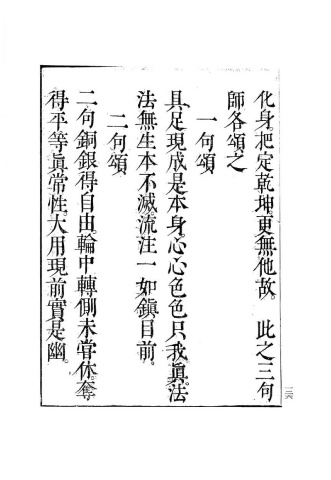 化身。把定乾坤。更無他故。　此之三句
師各頌之
一句頌
具足現成是本身。心心色色只我眞。法
法無生本不滅。流注一如鎭目前。
二句頌
二句銅銀得自由。輪中轉側未甞休。奪
得平等眞常性。大用現前實是幽。
二六